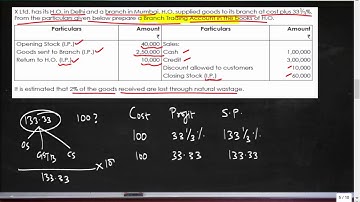 X Ltd. has its H.O. in Delhi and a branch in Mumbai. H.O. supplied goods to its branch at cost plus 33⅓%.
From the particulars given below prepare a Branch Trading Account in the books of H.O.
Particulars Amount ₹ Particulars Amount ₹
Opening Stock (I.P.) 40,000 Sales:
Goods sent to Branch (I.P.) 2,50,000 Cash 1,00,000
Return to H.O. (I.P.) 10,000 Credit 3,00,000
Discount allowed to customers 10,000
Closing Stock (I.P.) 60,000
It is estimated that 2% of the goods received are lost through natural wastage.
133.33 100 ?
OS GSTB CS
133.33 × 100
Cost Profit S.P.
100 33⅓% 133⅓%
100 33.33 133.33